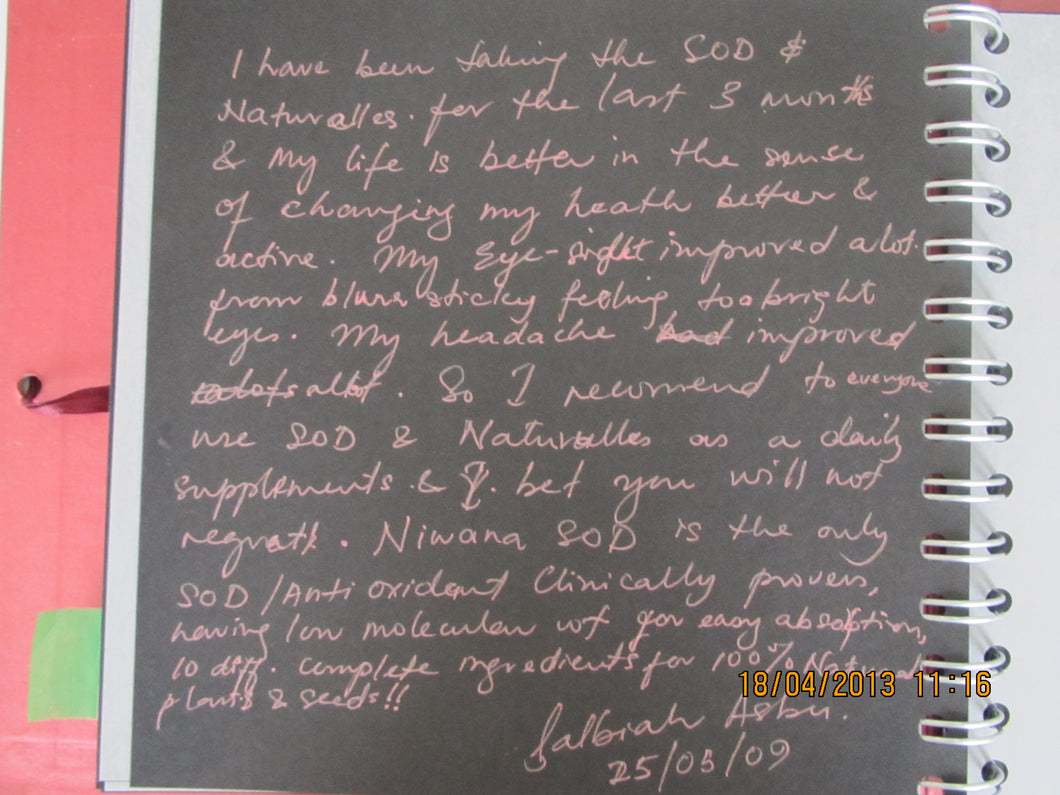 I have been taking the SOD &
Naturalles. for the last 3 months
& my life is better in the sense
of changing my heath better &
active. My Eye-sight improved alot.
from blurr sticky feeling to a bright
eyes. My headache had improved
allot. So I recomend to everyone
use SOD & Naturalles as a daily
supplements & I. bet you will not
Niwana SOD is the only
SOD/Anti oxidant Clinically proven,
having low molecular wt for easy absoption,
10 diff. complete ingredients for 100% Natural
plants & seeds!!
Salbiah
25/05/09
18/04/2013 11:16